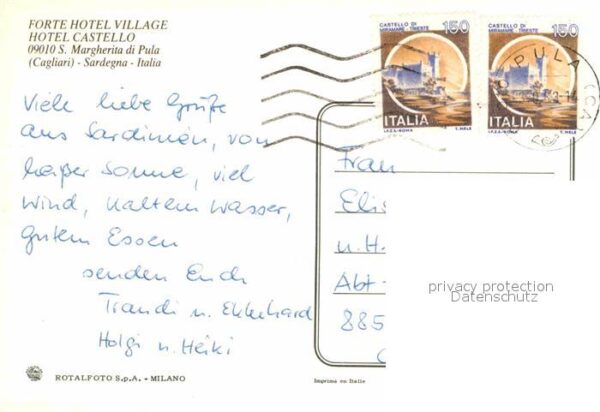 FORTE HOTEL VILLAGE
HOTEL CASTELLO
09010 S. Margherita di Pula
(Cagliari) - Sardegna - Italia
CASTELLO DI
MIRAMARE - TRIESTE
150
ITALIA
I.P.Z.S.-ROMA
E. MELE
CASTELLO DI
MIRAMARE - TRIESTE
150
ITALIA
I.P.Z.S.-ROMA
E. MELE
PULA (CA
Viele liebe Grüße
aus Sardinien, von
heißer Sonne, viel
Wind, kaltem Wasser,
gutem Essen
senden Euch
Traudi u. Ekkehard
Holgi u. Heiki
Frau
Elis
u. H.
Abt-
885
privacy protection
Datenschutz
ROTALFOTO S.p.A. - MILANO
Imprimé en Italie